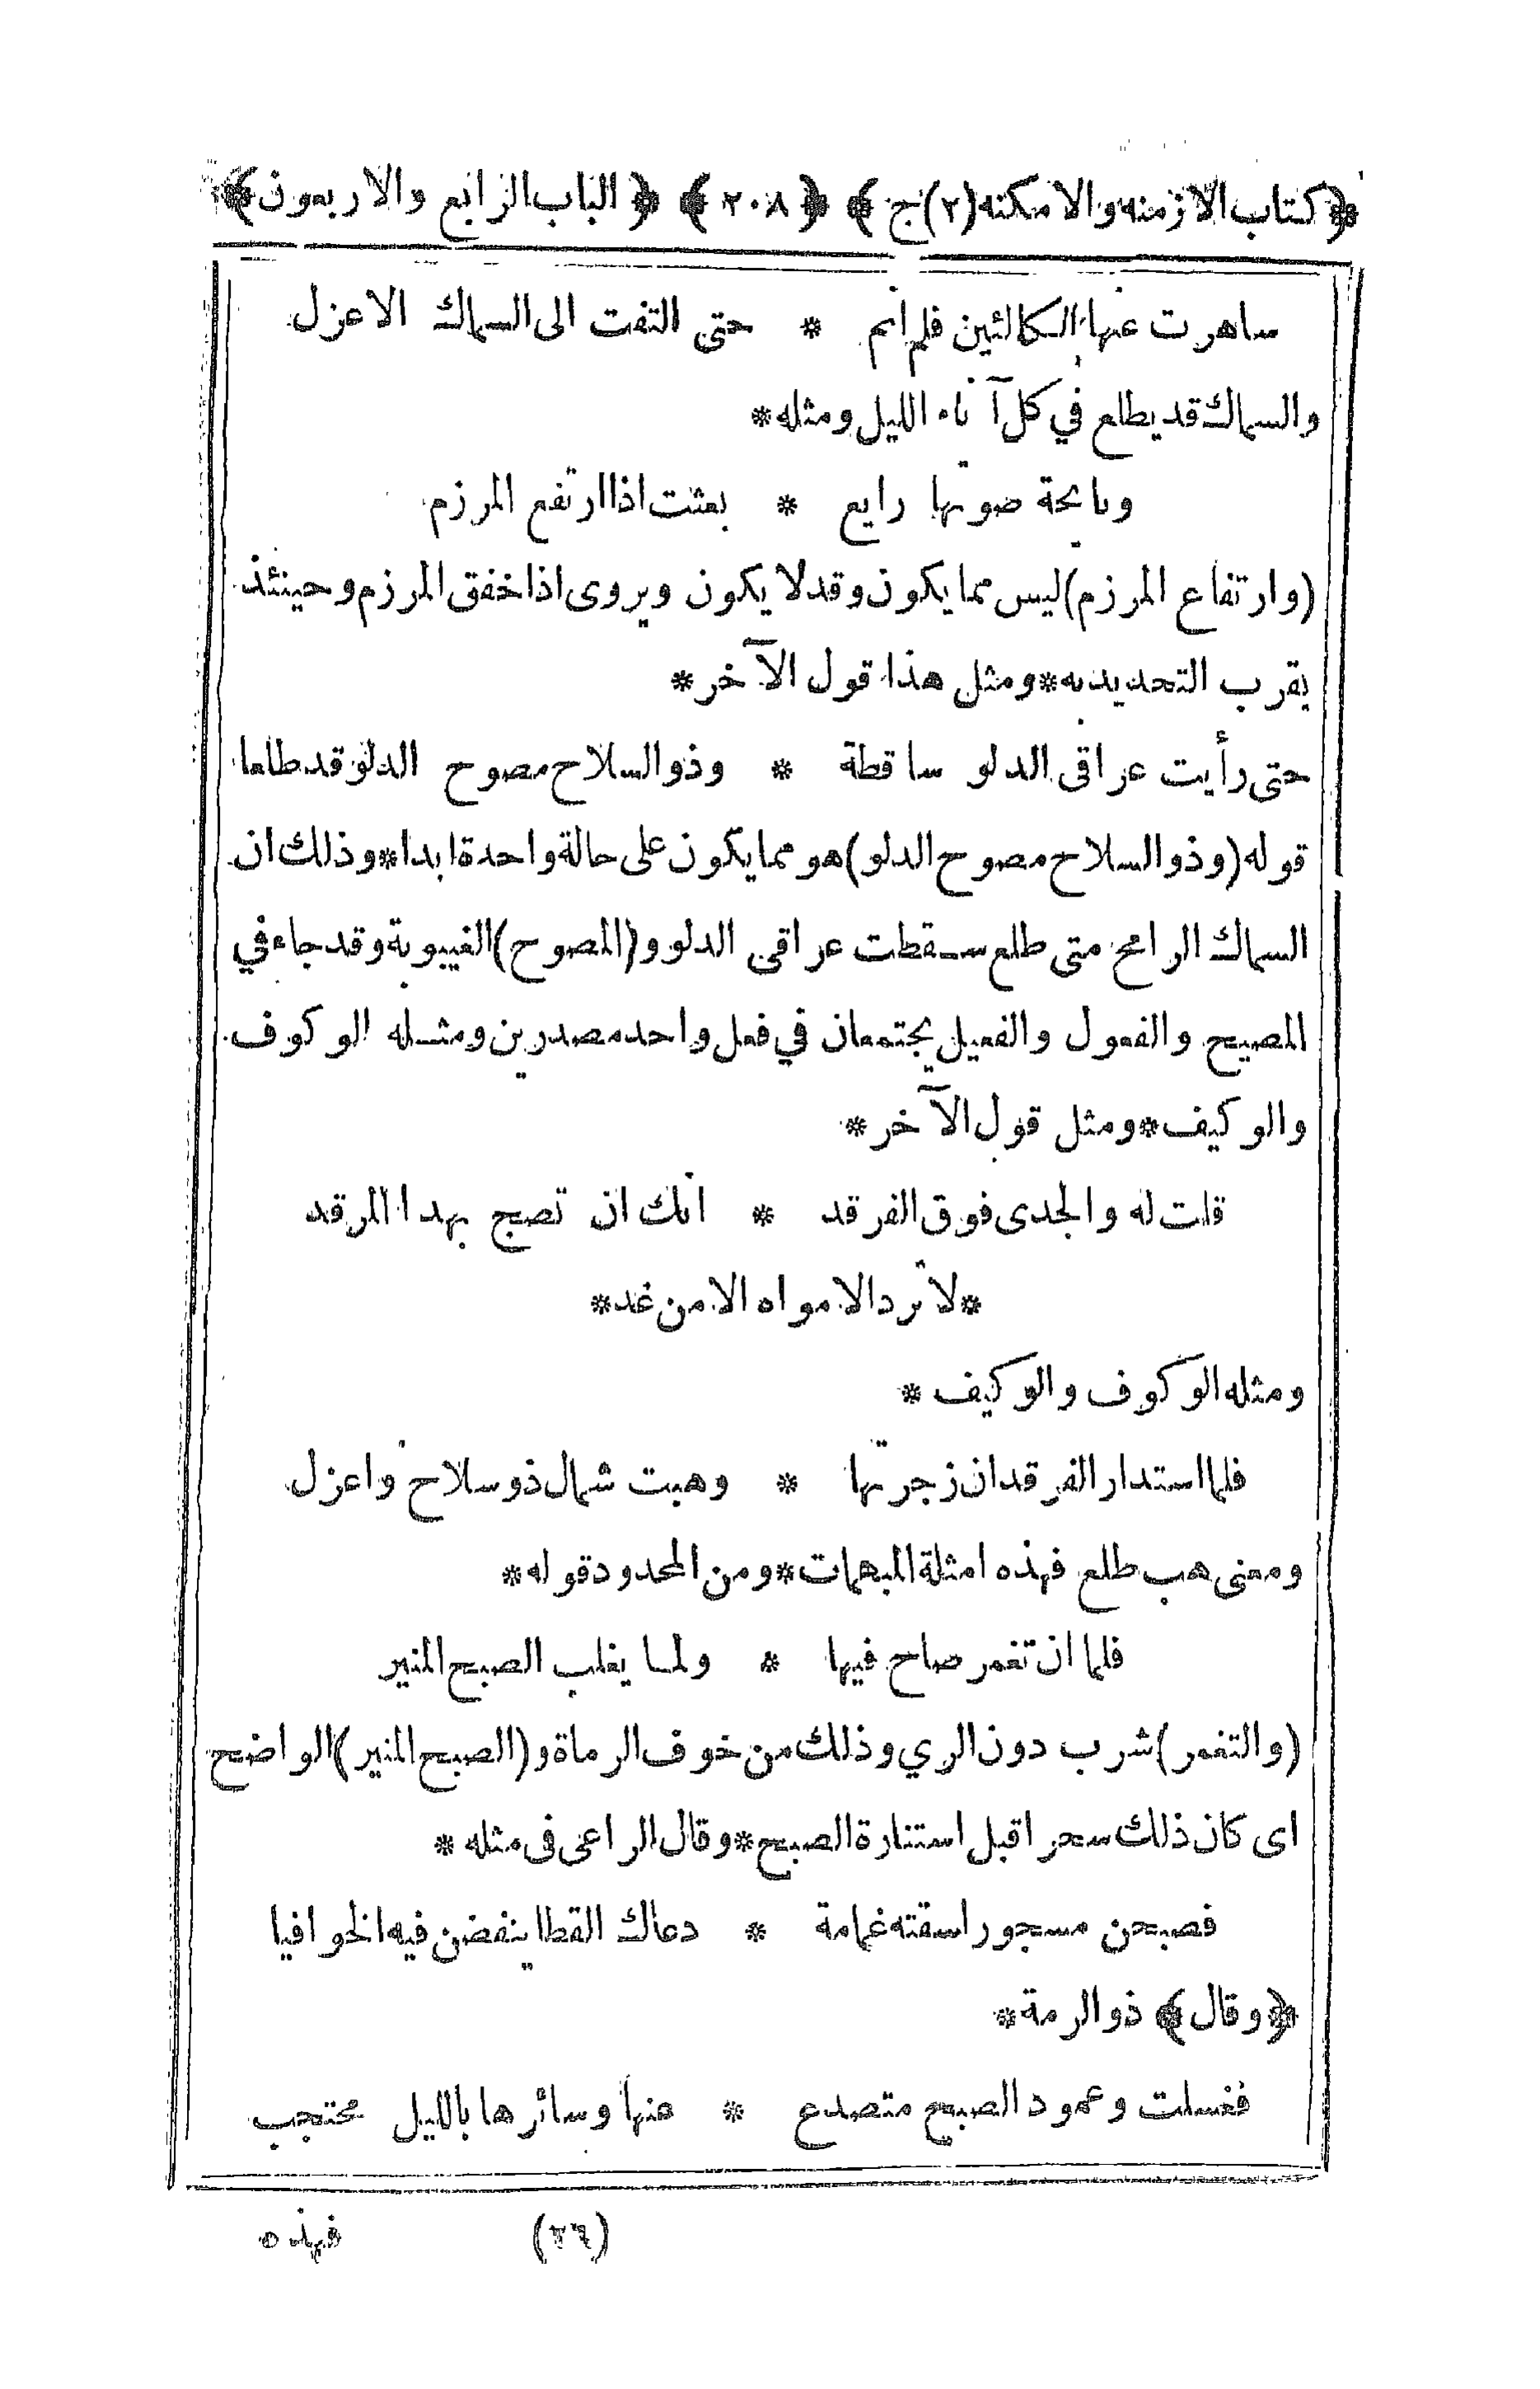 ﴿كتاب الازمنه والامكنه(٢)ج﴾ ﴿٢٠٨﴾ ﴿الباب الرابع والاربعون﴾
ساهرت عنها الكالئين فلم انم * حتى التفت الى السماك الاعزل
والسماك قد يطلع في كل آناء الليل ومثله*
ونائحة صوتها رايع * بعثت اذا ارتفع المرزم
(وارتفاع المرزم) ليس مما يكون وقد لا يكون ويروى اذا خفق المرزم وحينئذ
يقرب التحديد به*ومثل هذا قول الآخر*
حتى رأيت عراقى الدلو ساقطة * وذو السلاح مصوح الدلو قد طلعا
قوله (وذو السلاح مصوح الدلو) هو مما يكون على حالة واحدة ابدا*وذلك ان
السماك الرامح متى طلع سقطت عراقى الدلو و(المصوح) الغيبوبة وقد جاء في
المصيح والفعول والفعيل يجتمعان في فعل واحد مصدرين ومثله الوكوف
والوكيف*ومثل قول الآخر*
قلت له والجدى فوق الفرقد * انك ان تصبح بهذا المرقد
*لا ترد الامواه الا من غد*
ومثله الوكوف والوكيف*
فلما استدار الفرقدان زجرتها * وهبت شمال ذو سلاح واعزل
ومعنى هب طلع فهذه امثلة المبهمات*ومن المحدود قوله*
فلما ان تغمر صاح فيها * ولما يغلب الصبح المنير
(والتغمر) شرب دون الري وذلك من خوف الرماة و(الصبح المنير) الواضح
اى كان ذلك سحرا قبل استنارة الصبح*وقال الراعى فى مثله*
فصبحن مسجورا سقته غمامة * دعاك القطا ينفضن فيه الخوافيا
﴿وقال﴾ ذو الرمة*
فغسلت وعمود الصبح متصدع * عنها وسائرها بالليل محتجب
(٢٦) فهذه